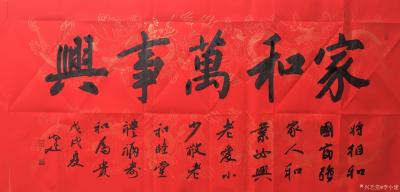 家和萬事興
將相和
國富強
家人和
業必興
老愛小
少敬老
和睦
禮
和為貴
戊戌夏